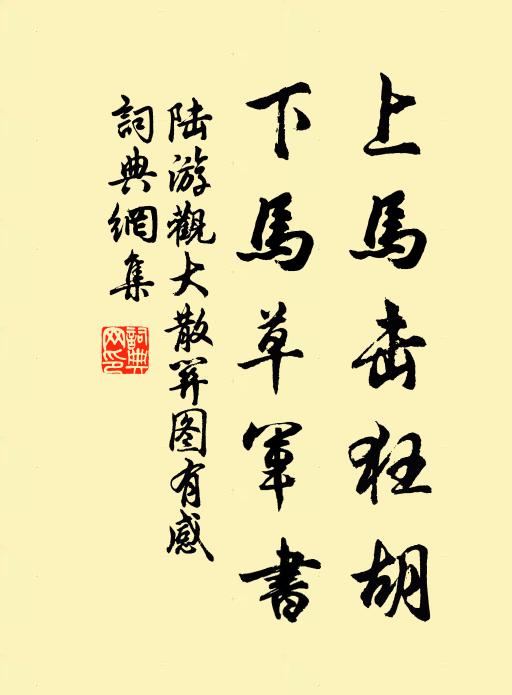 上馬击狂胡
下馬草軍書
陆游觀大散關图有感
詞典網集
詞典网印